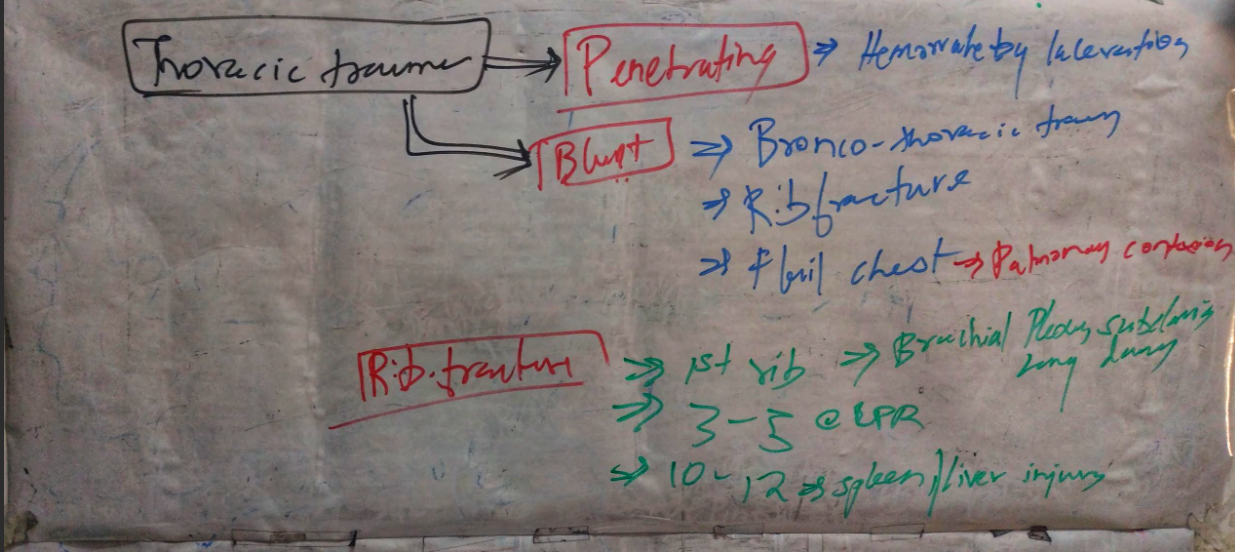 Thoracic trauma ⇒ Penetrating ⇒ Hemorrahe by laceration
Blunt ⇒ Bronco-thoracic traum
⇒ Rib fracture
⇒ Flail chest → Pulmonary contusion
Rib.fracture ⇒ 1st rib ⇒ Brachial Plexus, subclavis
Lung
⇒ 3-5 @ CPR
⇒ 10-12 ⇒ spleen/liver injury